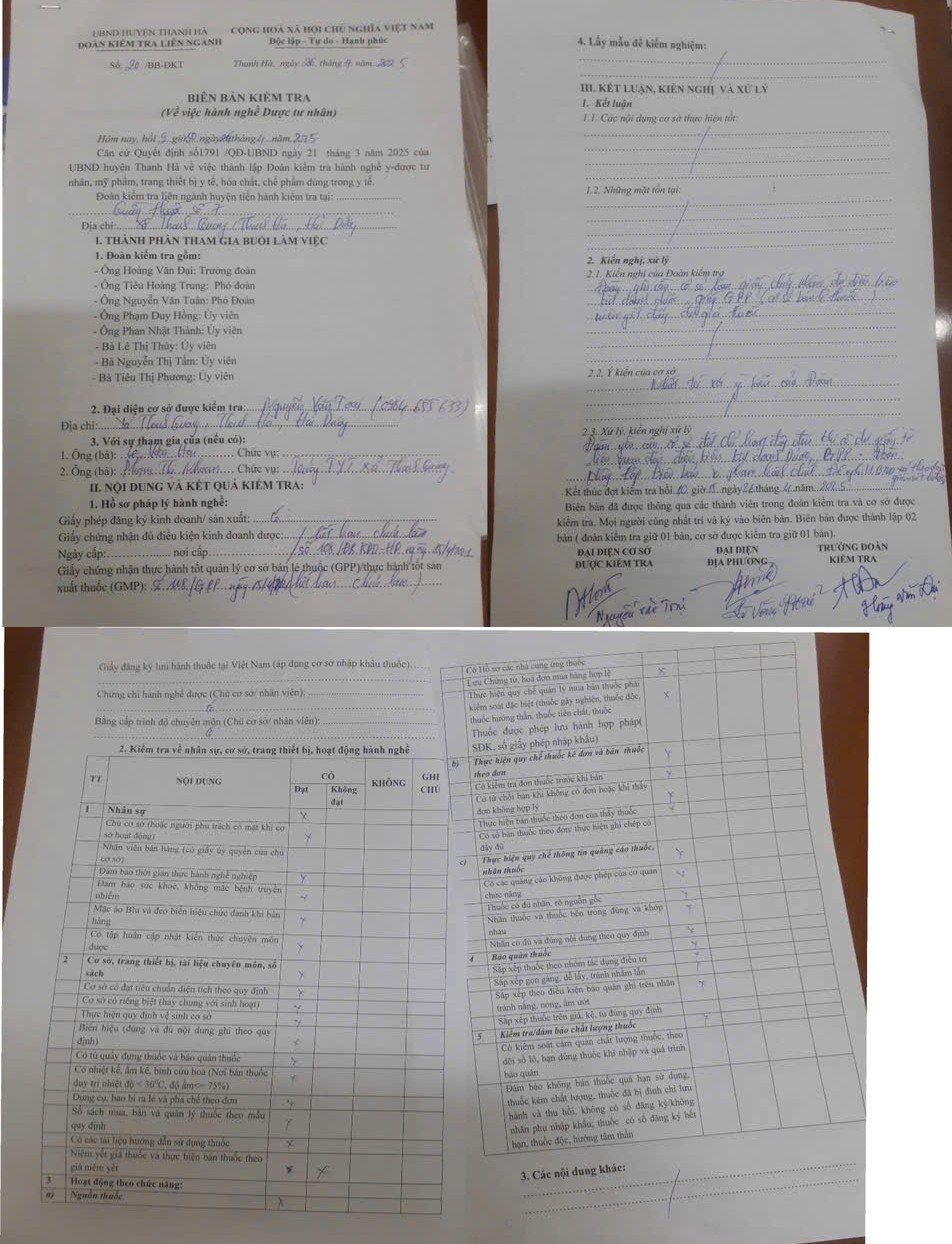 UBND HUYỆN THANH HÀ
ĐOÀN KIỂM TRA LIÊN NGÀNH
CỘNG HOÀ XÃ HỘI CHỦ NGHĨA VIỆT NAM
Độc lập - Tự do - Hạnh phúc
Số: 20 /BB-ĐKT
Thanh Hà, ngày 26 tháng 4 năm 2025
BIÊN BẢN KIỂM TRA
(Về việc hành nghề Dược tư nhân)
Hôm nay, hồi 9 giờ 50 ngày 26 tháng 4 năm 2025
Căn cứ Quyết định số1791 /QĐ-UBND ngày 21 tháng 3 năm 2025 của
UBND huyện Thanh Hà về việc thành lập Đoàn kiểm tra hành nghề y-dược tư
nhân, mỹ phẩm, trang thiết bị y tế, hóa chất, chế phẩm dùng trong y tế.
Đoàn kiểm tra liên ngành huyện tiến hành kiểm tra tại:
Quầy thuốc số 7
Địa chỉ: Xã Thanh Quang, Thanh Hà, Hải Dương
I. THÀNH PHẦN THAM GIA BUỔI LÀM VIỆC
1. Đoàn kiểm tra gồm:
- Ông Hoàng Văn Đại: Trưởng đoàn
- Ông Tiêu Hoàng Trung: Phó đoàn
- Ông Nguyễn Văn Tuân: Phó Đoàn
- Ông Phạm Duy Hồng: Ủy viên
- Ông Phan Nhật Thành: Ủy viên
- Bà Lê Thị Thúy: Ủy viên
- Bà Nguyễn Thị Tấm: Ủy viên
- Bà Tiêu Thị Phương: Ủy viên
2. Đại diện cơ sở được kiểm tra: Nguyễn Văn (0984 655 633)
Địa chỉ: Xã Thanh Quang, Thanh Hà, Hải Dương
3. Với sự tham gia của (nếu có):
1. Ông (bà): Lê Văn Chức vụ:
2. Ông (bà): Phạm Thị Khoan Chức vụ: TYT xã Thanh Quang
II. NỘI DUNG VÀ KẾT QUẢ KIỂM TRA:
1. Hồ sơ pháp lý hành nghề:
Giấy phép đăng ký kinh doanh/ sản xuất: Có
Giấy chứng nhận đủ điều kiện kinh doanh dược: hết hạn chưa làm
Ngày cấp: nơi cấp số 108
Giấy chứng nhận thực hành tốt quản lý cơ sở bán lẻ thuốc (GPP)/thực hành tốt sản
xuất thuốc (GMP): Số 118/GPP ngày (hết hạn chưa làm)
4. Lấy mẫu để kiểm nghiệm:
III. KẾT LUẬN, KIẾN NGHỊ VÀ XỬ LÝ
1. Kết luận
1.1. Các nội dung cơ sở thực hiện tốt:
1.2. Những mặt tồn tại:
2. Kiến nghị, xử lý
2.1. Kiến nghị của Đoàn kiểm tra
Đoàn yêu cầu cơ sở làm giấy chứng nhận đủ điều kiện
kinh doanh dược, giấy GPP (cơ sở bán lẻ thuốc)
niêm yết đầy đủ giá thuốc
2.2. Ý kiến của cơ sở
Nhất trí với ý kiến của Đoàn
2.3. Xử lý, kiến nghị xử lý
Đoàn yêu cầu cơ sở
kinh doanh dược, GPP. Đoàn
lập biên bản
Kết thúc đợt kiểm tra hồi 10 giờ 15 ngày 26 tháng 4 năm 2025
Biên bản đã được thông qua các thành viên trong đoàn kiểm tra và cơ sở được
kiểm tra. Mọi người cùng nhất trí và ký vào biên bản. Biên bản được thành lập 02
bản ( đoàn kiểm tra giữ 01 bản, cơ sở được kiểm tra giữ 01 bản).
ĐẠI DIỆN CƠ SỞ
ĐƯỢC KIỂM TRA
ĐẠI DIỆN
ĐỊA PHƯƠNG
TRƯỞNG ĐOÀN
KIỂM TRA
Hoàng Văn Đại
Giấy đăng ký lưu hành thuốc tại Việt Nam (áp dụng cơ sở nhập khẩu thuốc):
Chứng chỉ hành nghề dược (Chủ cơ sở/ nhân viên):
Có
Bằng cấp trình độ chuyên môn (Chủ cơ sở/ nhân viên):
Có
2. Kiểm tra về nhân sự, cơ sở, trang thiết bị, hoạt động hành nghề
TT NỘI DUNG CÓ KHÔNG GHI CHÚ
Đạt Không đạt
1 Nhân sự x
Chủ cơ sở (hoặc người phụ trách có mặt khi cơ
sở hoạt động) x
Nhân viên bán hàng (có giấy ủy quyền của chủ
cơ sở)
Đảm bảo thời gian thực hành nghề nghiệp x
Đảm bảo sức khoẻ, không mắc bệnh truyền
nhiễm x
Mặc áo Blu và đeo biển hiệu chức danh khi bán
hàng x
Có tập huấn cập nhật kiến thức chuyên môn
dược x
2 Cơ sở, trang thiết bị, tài liệu chuyên môn, sổ
sách x
Cơ sở có đạt tiêu chuẩn diện tích theo quy định x
Cơ sở có riêng biệt (hay chung với sinh hoạt) x
Thực hiện quy định về vệ sinh cơ sở x
Biển hiệu (đúng và đủ nội dung ghi theo quy
định) x
Có tủ quầy đựng thuốc và bảo quản thuốc x
Có nhiệt kế, ẩm kế, bình cứu hoả (Nơi bán thuốc
duy trì nhiệt độ < 30°C, độ ẩm<= 75%) x
Dụng cụ, bao bì ra lẻ và pha chế theo đơn x
Sổ sách mua, bán và quản lý thuốc theo mẫu
quy định x
Có các tài liệu hướng dẫn sử dụng thuốc x
Niêm yết giá thuốc và thực hiện bán thuốc theo
giá niêm yết x
3 Hoạt động theo chức năng:
a) Nguồn thuốc x
Có Hồ sơ các nhà cung ứng thuốc
Lưu Chứng từ, hoá đơn mua hàng hợp lệ x
Thực hiện quy chế quản lý mua bán thuốc phải
kiểm soát đặc biệt (thuốc gây nghiện, thuốc độc,
thuốc hướng thần, thuốc tiền chất, thuốc x
Thuốc được phép lưu hành hợp pháp(
SĐK, số giấy phép nhập khẩu)
b) Thực hiện quy chế thuốc kê đơn và bán thuốc
theo đơn x
Có kiểm tra đơn thuốc trước khi bán x
Có từ chối bán khi không có đơn hoặc khi thấy
đơn không hợp lý x
Thực hiện bán thuốc theo đơn của thầy thuốc x
Có sổ bán thuốc theo đơn/ thực hiện ghi chép có
đầy đủ
c) Thực hiện quy chế thông tin quảng cáo thuốc,
nhãn thuốc x
Có các quảng cáo không được phép của cơ quan
chức năng x
Thuốc có đủ nhãn, rõ nguồn gốc x
Nhãn thuốc và thuốc bên trong đúng và khớp
nhau
Nhãn có đủ và đúng nội dung theo quy định x
4 Bảo quản thuốc x
Sắp xếp thuốc theo nhóm tác dụng điều trị x
Sắp xếp gọn gàng, dễ lấy, tránh nhầm lẫn
Sắp xếp theo điều kiện bảo quản ghi trên nhãn
tránh nắng, nóng, ẩm ướt x
Sắp xếp thuốc trên giá, kệ, tủ đúng quy định
5 Kiểm tra/đảm bảo chất lượng thuốc x
Có kiểm soát cảm quan chất lượng thuốc, theo
dõi số lô, hạn dùng thuốc khi nhập và quá trình
bảo quản
Đảm bảo không bán thuốc quá hạn sử dụng,
thuốc kém chất lượng, thuốc đã bị đình chỉ lưu
hành và thu hồi, không có số đăng ký/không
nhãn phụ nhập khẩu; thuốc có số đăng ký hết
hạn, thuốc độc, hướng tâm thần
3. Các nội dung khác: